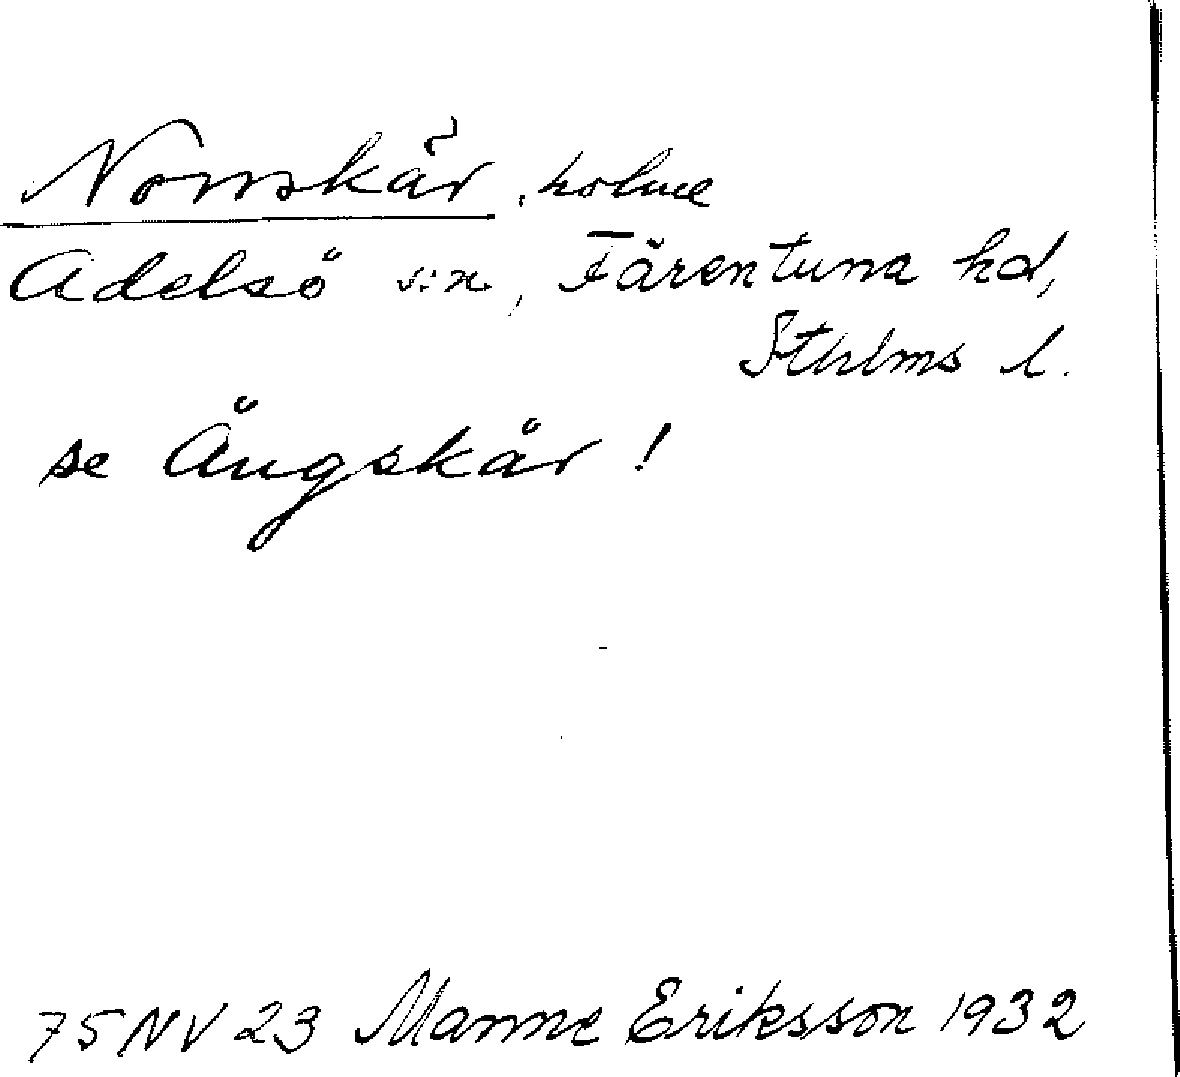 Norrskär, holme
Adelsö s:n, Färentuna hd,
Sthlms l.
se Ängskär!
75NV23 Manne Eriksson 1932